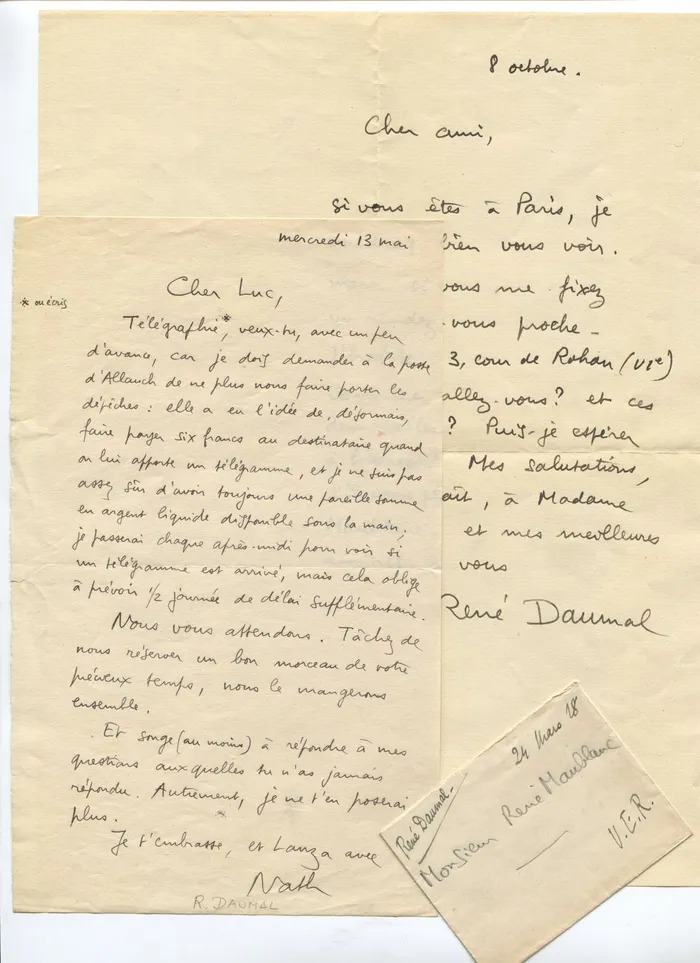 8 octobre.
Cher ami,
si vous êtes à Paris, je
bien vous voir.
vous me fixez
-vous proche -
3, cour de Rohan (VIe)
allez-vous? et ces
? Puis-je espérer
Mes salutations,
ait, à Madame
et mes meilleures
vous
René Daumal
mercredi 13 mai
Cher Luc,
* ou écris
Télégraphie*, veux-tu, avec un peu
d'avance, car je dois demander à la poste
d'Allauch de ne plus nous faire porter les
dépêches : elle a eu l'idée de, désormais,
faire payer six francs au destinataire quand
on lui apporte un télégramme, et je ne suis pas
assez sûr d'avoir toujours une pareille somme
en argent liquide disponible sous la main ;
je passerai chaque après-midi pour voir si
un télégramme est arrivé, mais cela oblige
à prévoir 1/2 journée de délai supplémentaire.
Nous vous attendons. Tâchez de
nous réserver un bon morceau de votre
précieux temps, nous le mangerons
ensemble.
Et songe (au moins) à répondre à mes
questions auxquelles tu n'as jamais
répondu. Autrement, je ne t'en poserai
plus.
Je t'embrasse, et Lanza avec
Nath
R. DAUMAL
24 Mars 28
René Daumal-
Monsieur René Maublanc
V.E.R.